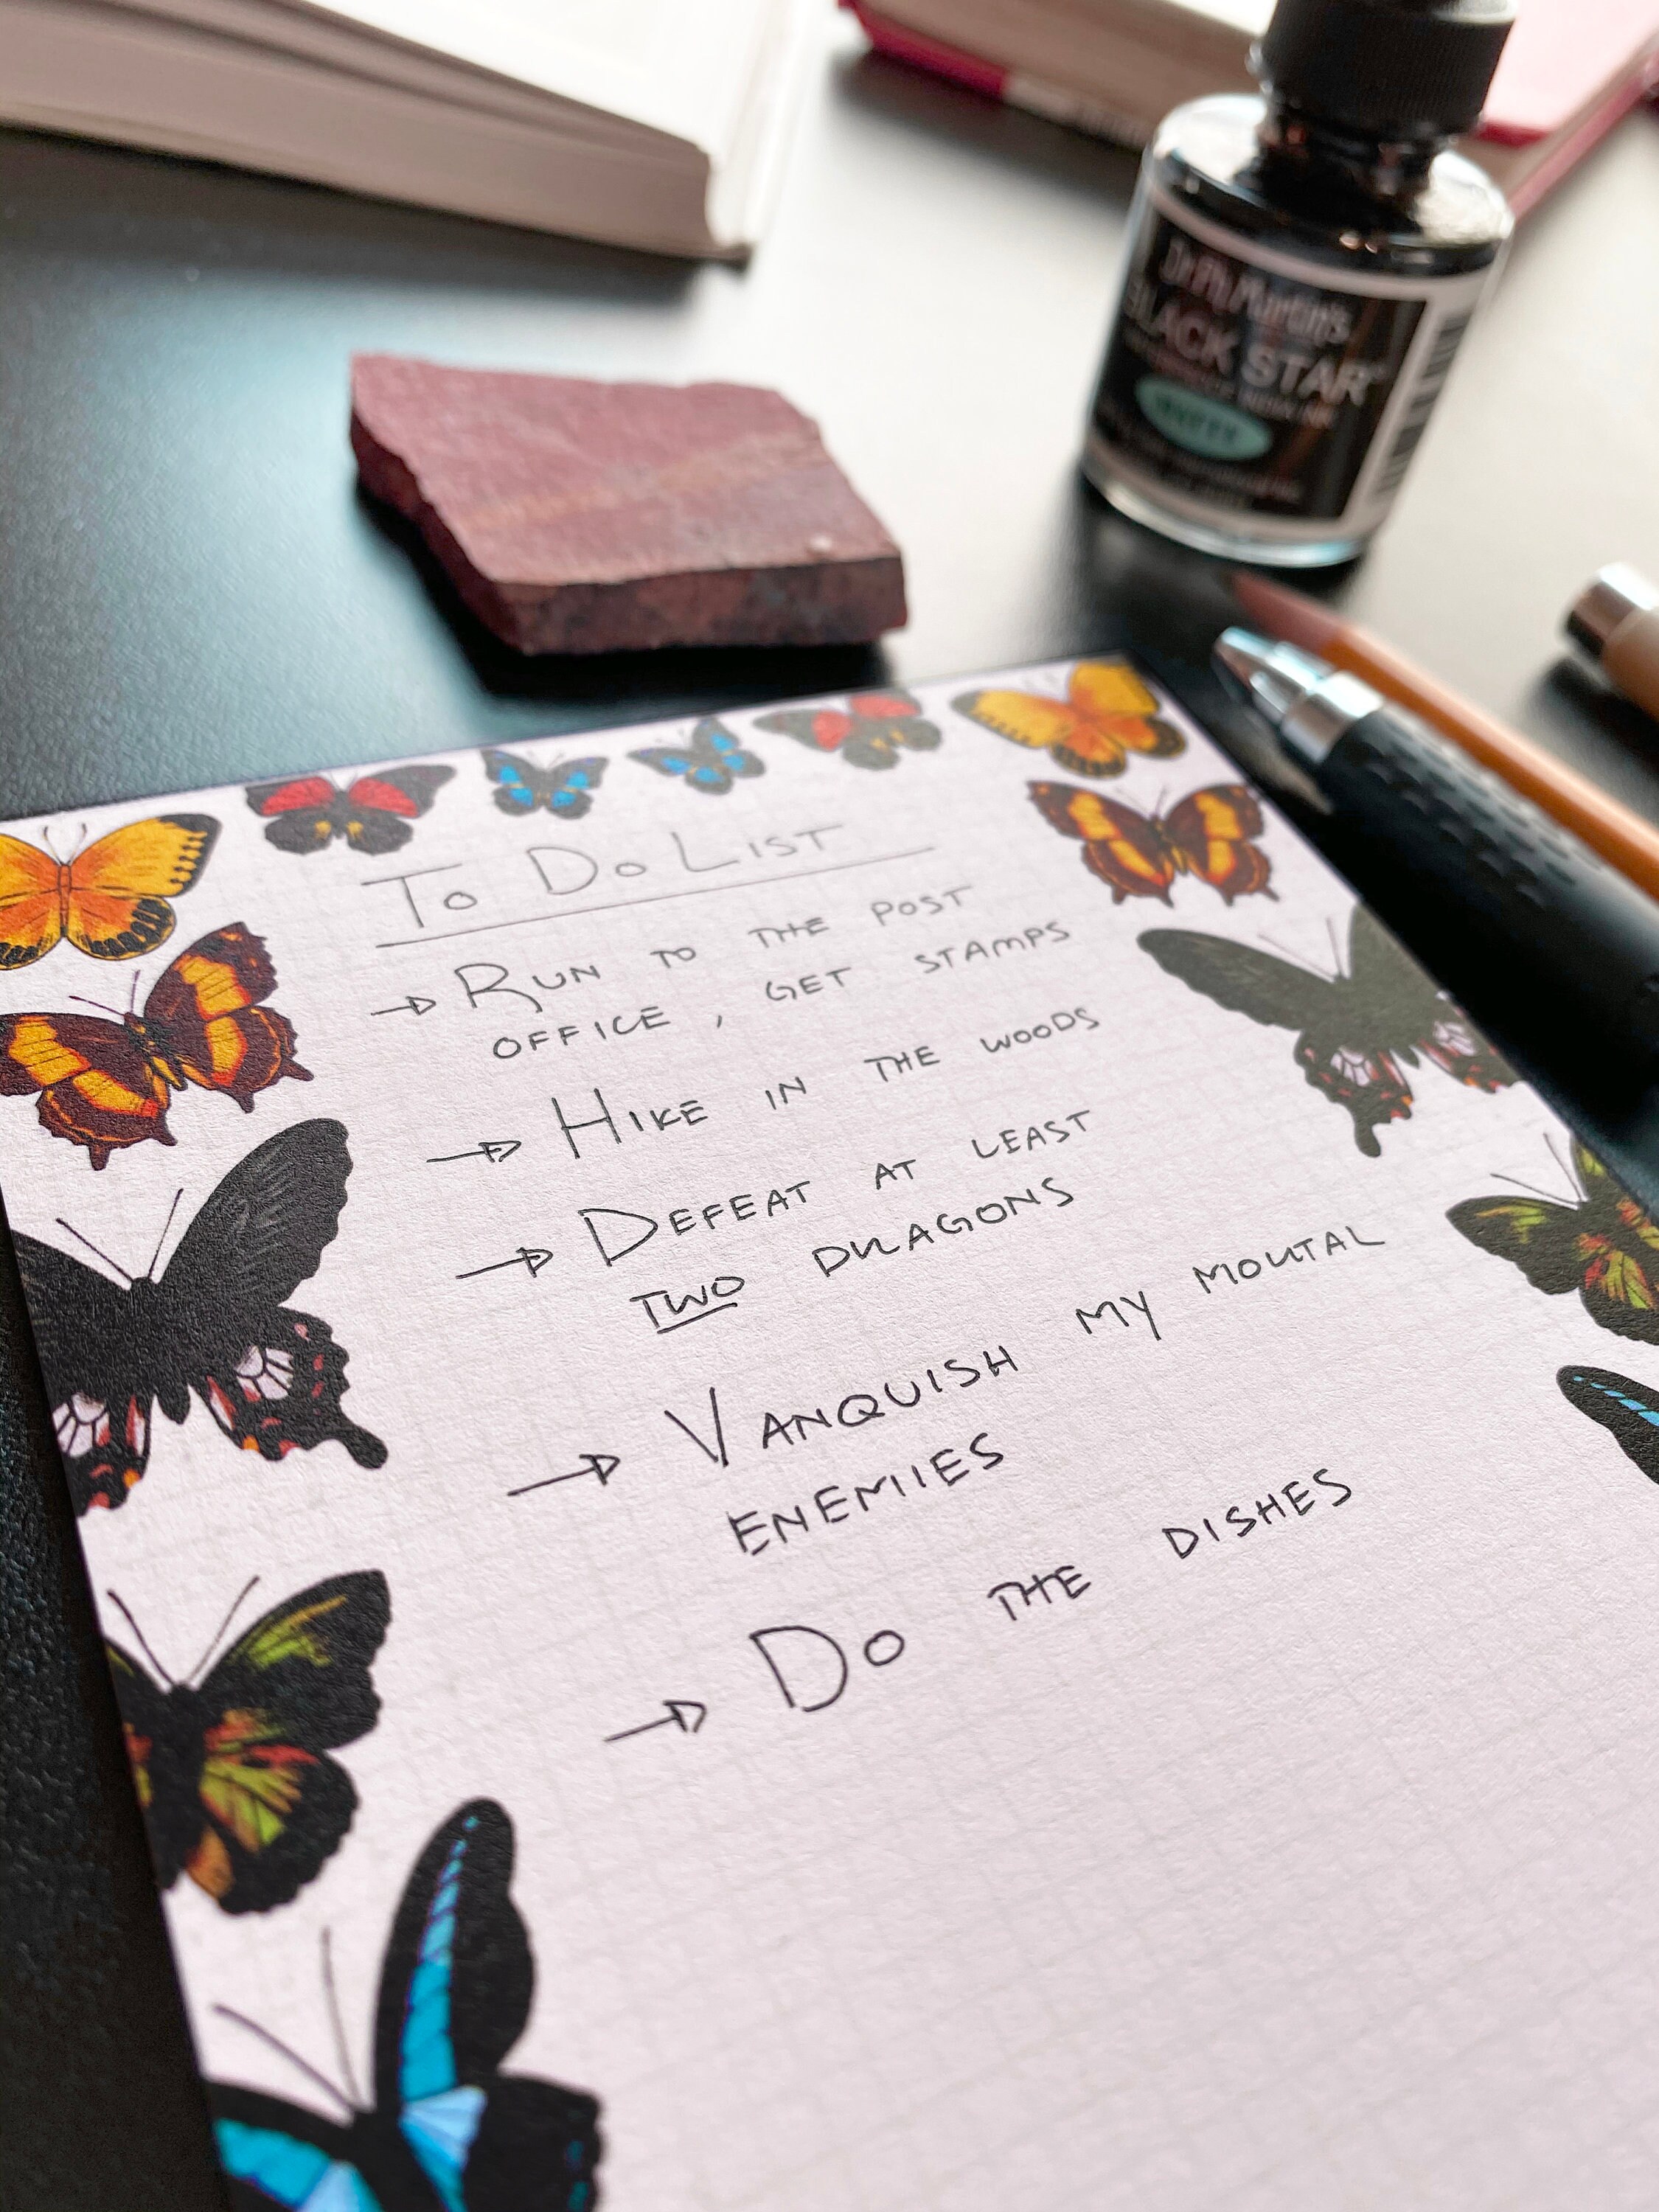 Dr. Ph. Martin's
BLACK STAR
MATTE
TO DO LIST
→ RUN TO THE POST
OFFICE, GET STAMPS
→ HIKE IN THE WOODS
→ DEFEAT AT LEAST
TWO DRAGONS
→ VANQUISH MY MORTAL
ENEMIES
→ DO THE DISHES